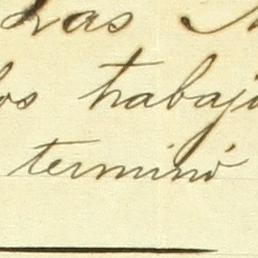 Las
los trabaj
terminó